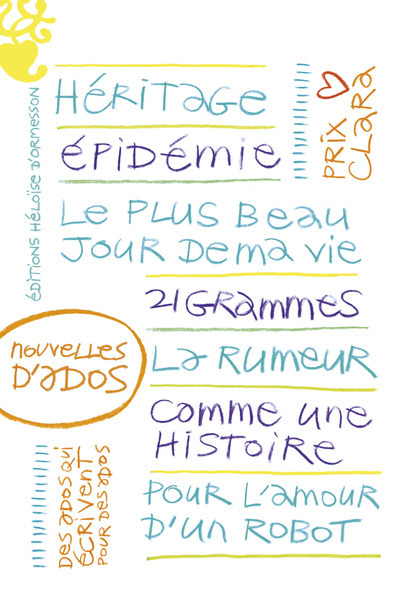 ÉDITIONS HÉLOÏSE D'ORMESSON
HÉRITAGE
PRIX
CLARA
ÉPIDÉMIE
LE PLUS BEAU
JOUR DE MA VIE
21 GRAMMES
NOUVELLES
D'ADOS
LA RUMEUR
COMME UNE
HISTOIRE
DES ADOS QUI
ÉCRIVENT
POUR DES ADOS
POUR L'AMOUR
D'UN ROBOT